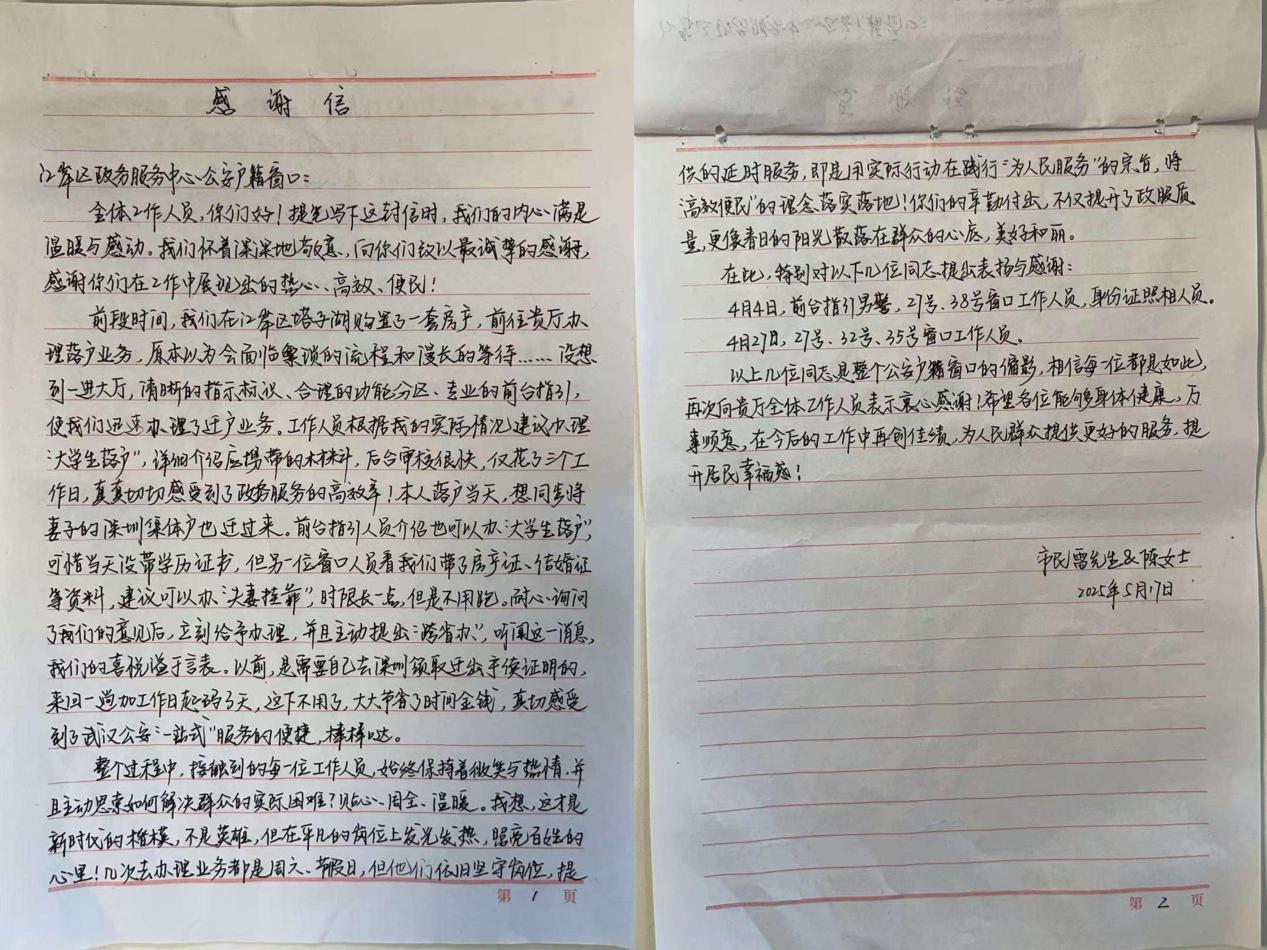 感谢信
江岸区政务服务中心公安户籍窗口:
全体工作人员,你们好!提笔写下这封信时,我们的内心满是
温暖与感动。我们怀着深深地敬意,向你们致以最诚挚的感谢,
感谢你们在工作中展现出的热心、高效、便民!
前段时间,我们在江岸区塔子湖购置了一套房产,前往贵厅办
理落户业务,原本以为会面临繁琐的流程和漫长的等待……没想
到一进大厅,清晰的指示标识、合理的功能分区、专业的前台指引,
使我们迅速办理了迁户业务。工作人员根据我的实际情况建议办理
“大学生落户”,详细介绍应携带的材料,后台审核很快,仅花了三个工
作日,真真切切感受到了政务服务的高效率!本人落户当天,想同步将
妻子的深圳集体户也迁过来。前台指引人员介绍也可以办“大学生落户”,
可惜当天没带学历证书,但另一位窗口人员看我们带了房产证、结婚证
等资料,建议可以办“夫妻挂靠”,时限长一点,但是不用跑。耐心询问
了我们的意见后,立刻给予办理,并且主动提出“跨省办”,听闻这一消息,
我们的喜悦溢于言表。以前,是需要自己去深圳领取迁出乎侯证明的,
来回一趟加工作日起码3天,这下不用了,大大节省了时间金钱,真切感受
到了武汉公安“一站式”服务的便捷,棒棒哒。
整个过程中,接触到的每一位工作人员,始终保持着微笑与热情,并
且主动思索如何解决群众的实际困难?贴心、周全、温暖。我想,这才是
新时代的楷模,不是英雄,但在平凡的岗位上发光发热,照亮百姓的
心里!几次去办理业务都是周六、节假日,但他们依旧坚守岗位,提
第 1 页
供的延时服务,即是用实际行动在践行“为人民服务”的宗旨,将
“高效便民”的理念落实落地!你们的辛勤付出,不仅提升了政服质
量,更像春日的阳光散落在群众的心底,美好和丽。
在此,特别对以下几位同志提出表扬与感谢:
4月4日,前台指引男警,27号、38号窗口工作人员,身份证照相人员。
4月27日,27号、32号、35号窗口工作人员。
以上几位同志是整个公安户籍窗口的缩影,相信每一位都是如此,
再次向贵厅全体工作人员表示衷心感谢!希望各位能够身体健康,万
事顺意,在今后的工作中再创佳绩,为人民群众提供更好的服务,提
升居民幸福感!
市民雷先生&陈女士
2025年5月17日
第 2 页